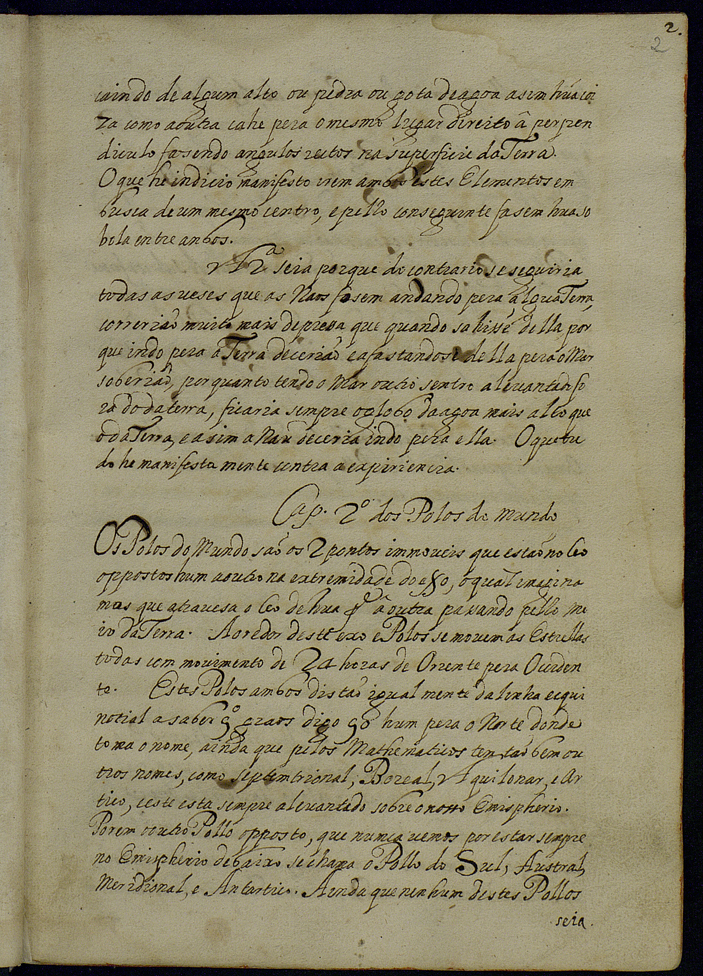 2.
2
caindo de algum alto ou pedra ou gota de agoa asim húa coi
za como a outra cahe pera o mesmo lugar direito â perpen
diculo fasendo angulos rectos na superficie da Terra.
O que he indicio manifesto irem ambos estes Elementos em
busca de um mesmo centro, e pello conseguinte fasem hua so
bola entre anbos.
A 2ª seia porque do contrario se seguiria
todas as veses que as Naos fosem andando pera algua Terra,
correriaõ muito mais depresa que quando sahise della por
que indo pera a Terra deceriaõ e afastandose della pera o Mar
soberiaõ, por quanto tendo o Mar outro sentro alevantado fo
ra do da terra, ficaria sempre o globo da agoa mais alto que
o da Terra, e asim a Nau deceria indo pera ella. O que tu
do he manifesta mente contra a expiriencia.
Cap. 2º dos Polos do Mundo
Os Polos do Mundo saõ os 2 pontos immoveis que estaõ no Ceo
oppostos hum ao outro na extremidade do exo, o qual imagina
mos que atravesa o Ceo de hua pte â outra pasando pello me
io da Terra. Ao redor deste exo e Polos se movem as Estrellas
todas com movimento de 24 horas de Oriente pera Ociden
te. Estes Polos ambos distaõ igual mente da linha equi
notial a saber 9º graos digo 90 hum pera o Norte donde
toma o nome, ainda que pelos Mathematicos tem taõ bem ou
tros nomes, como Septemtrional, Boreal, Aquilonar, e Ar
tico, e este esta sempre alevantado sobre o nosso Emispherio.
Porem o outro Pollo opposto, que nunca vemos por estar sempre
no Emispherio debaixo se chama o Pollo do Sul, Austral,
Meridional, e Antartico. Ainda que nenhum destes Pollos
seia